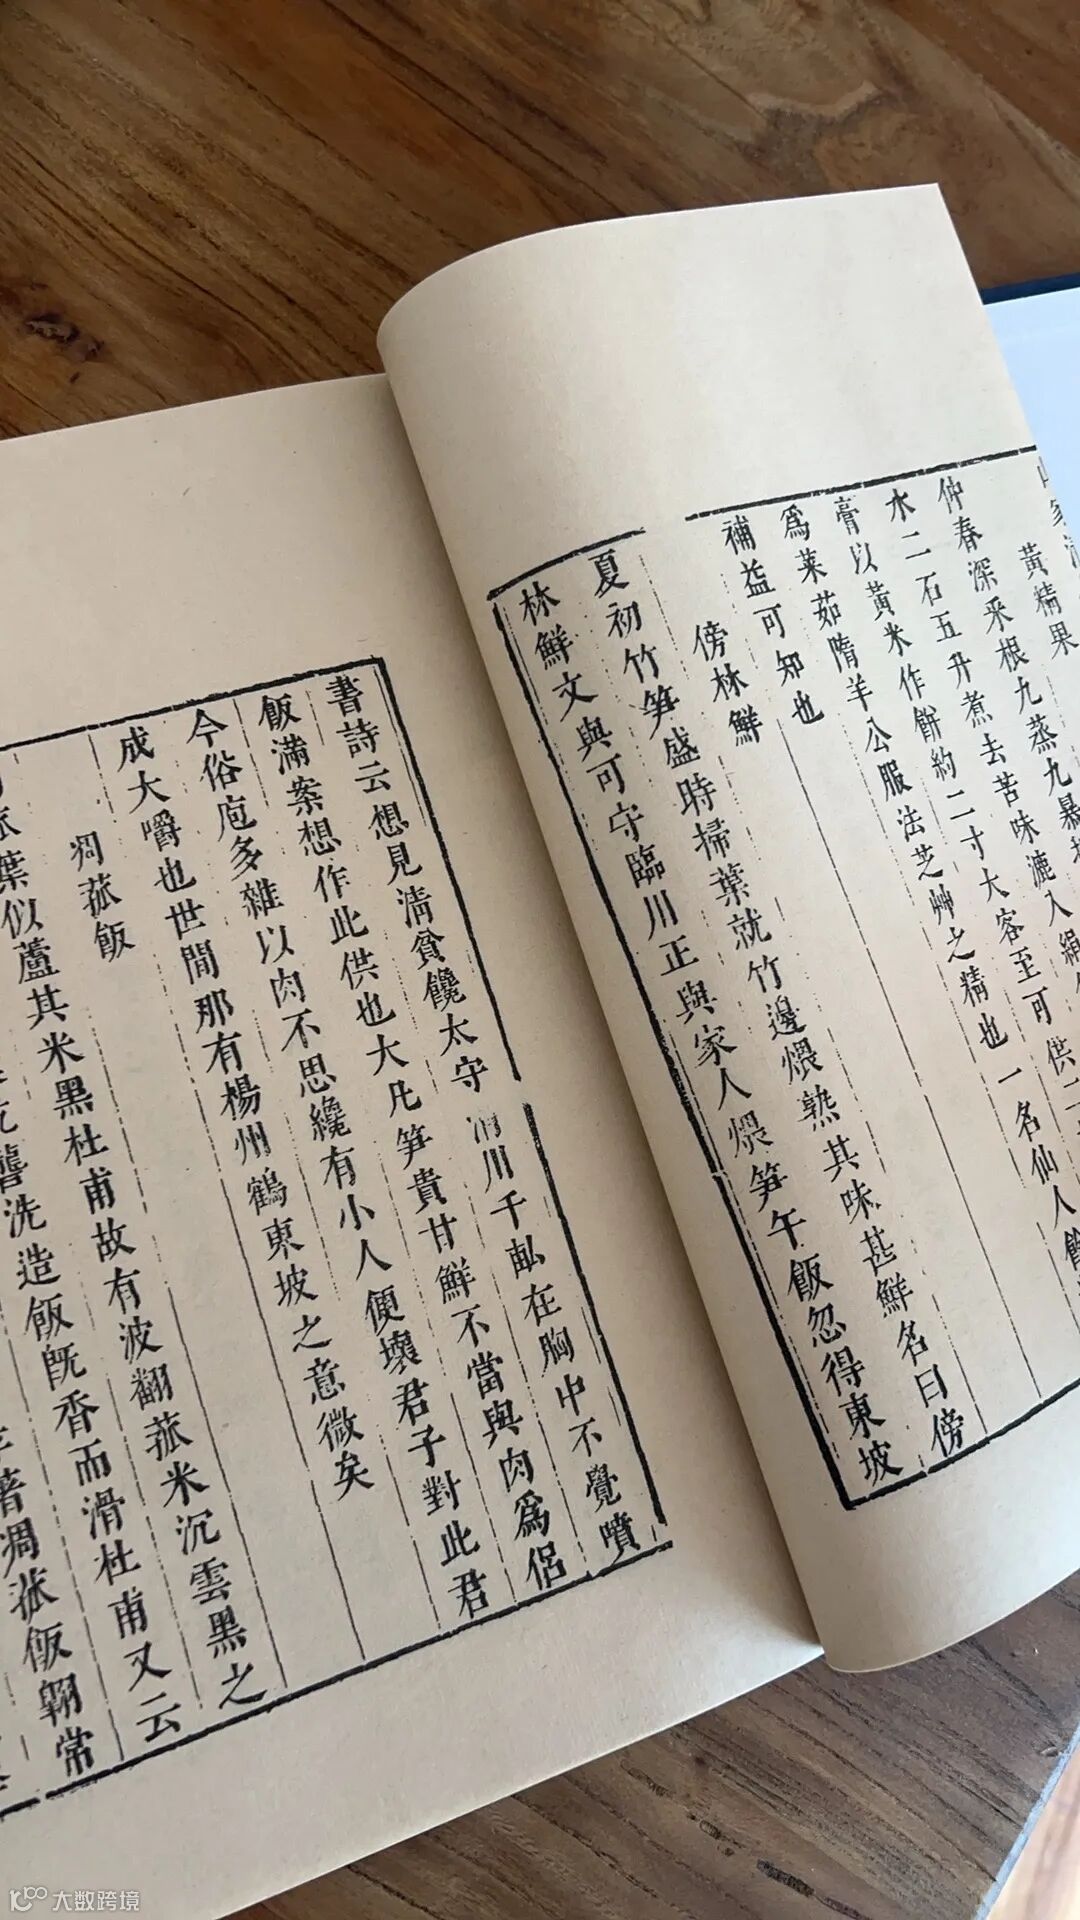 山家清
黃精果
仲春深采根九蒸九暴
水二石五升煮去苦味漉入絹
膏以黃米作餅約二寸大客至可供二
爲菜茹隋羊公服法芝艸之精也一名仙人餘
補益可知也
傍林鮮
夏初竹笋盛時掃葉就竹邊煨熟其味甚鮮名曰傍
林鮮文與可守臨川正與家人煨笋午飯忽得東坡
書詩云想見淸貧饞太守渭川千畝在胸中不覺噴
飯滿案想作此供也大凡笋貴甘鮮不當與肉爲侶
今俗庖多雜以肉不思纔有小人便壞君子對此君
成大嚼也世間那有楊州鶴東坡之意微矣
凋菰飯
菰葉似蘆其米黑杜甫故有波翻菰米沉雲黑之
礱洗造飯旣香而滑杜甫又云
著凋菰飯翱常
大数跨境